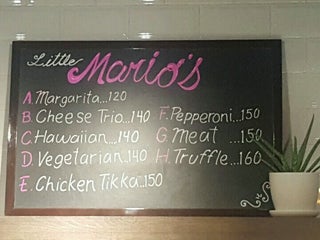 Little Mario's
A. Margarita...120
B. Cheese Trio...140
C. Hawaiian...140
D. Vegetarian...140
E. Chicken Tikka...150
F. Pepperoni...150
G. Meat...150
H. Truffle...160